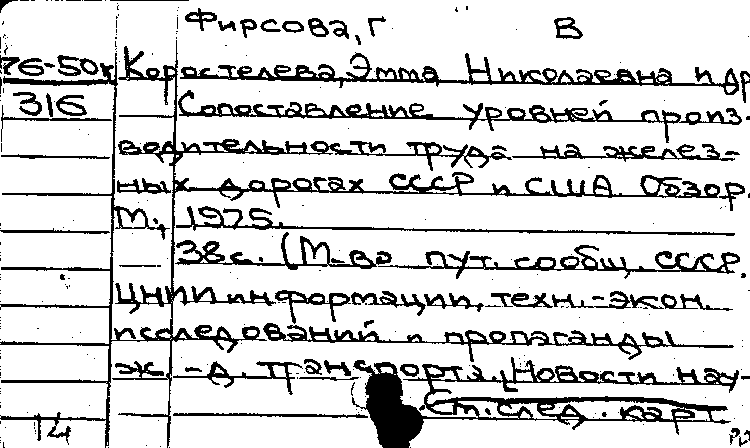 Фирсова, Г В
76-50к Коростелева, Эмма Николаевна и др
316 Сопоставление уровней произ-
водительности труда на желез-
ных дорогах СССР и США. Обзор.
М., 1975.
38 с. (М-во пут. сообщ. СССР.
ЦНИИ информации, техн.-экон.
исследований и пропаганды
ж.-д. транспорта. Новости нау-
См. след. карт.
14